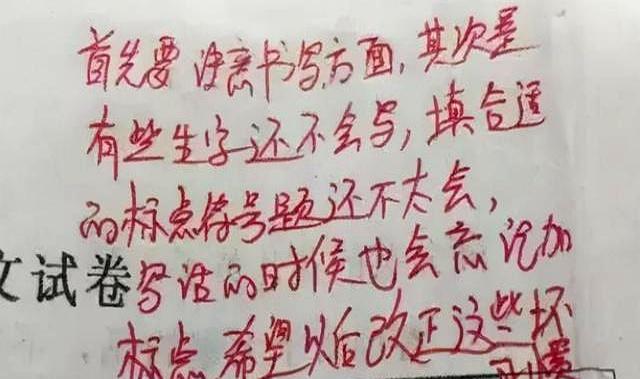 首先要注意书写方面,其次是
有些生字还不会写,填合适
的标点符号题还不太会,
文试卷 写话的时候也会忘记加
标点 希望以后改正这些坏
习惯